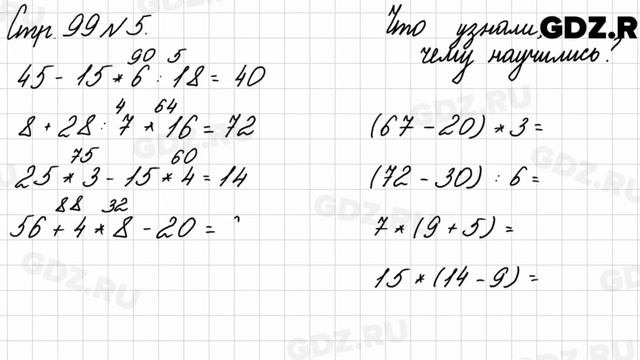 Стр. 99 № 5.
Что узнали,
чему научились?
GDZ.R
90 5
45 - 15 * 6 : 18 = 40
4 64
8 + 28 : 7 * 16 = 72
75 60
25 * 3 - 15 * 4 = 14
88 32
56 + 4 * 8 - 20 =
(67 - 20) * 3 =
(72 - 30) : 6 =
7 * (9 + 5) =
15 * (14 - 9) =
GDZ.RU
GDZ.RU
GDZ.RU
GDZ.RU
GDZ.RU